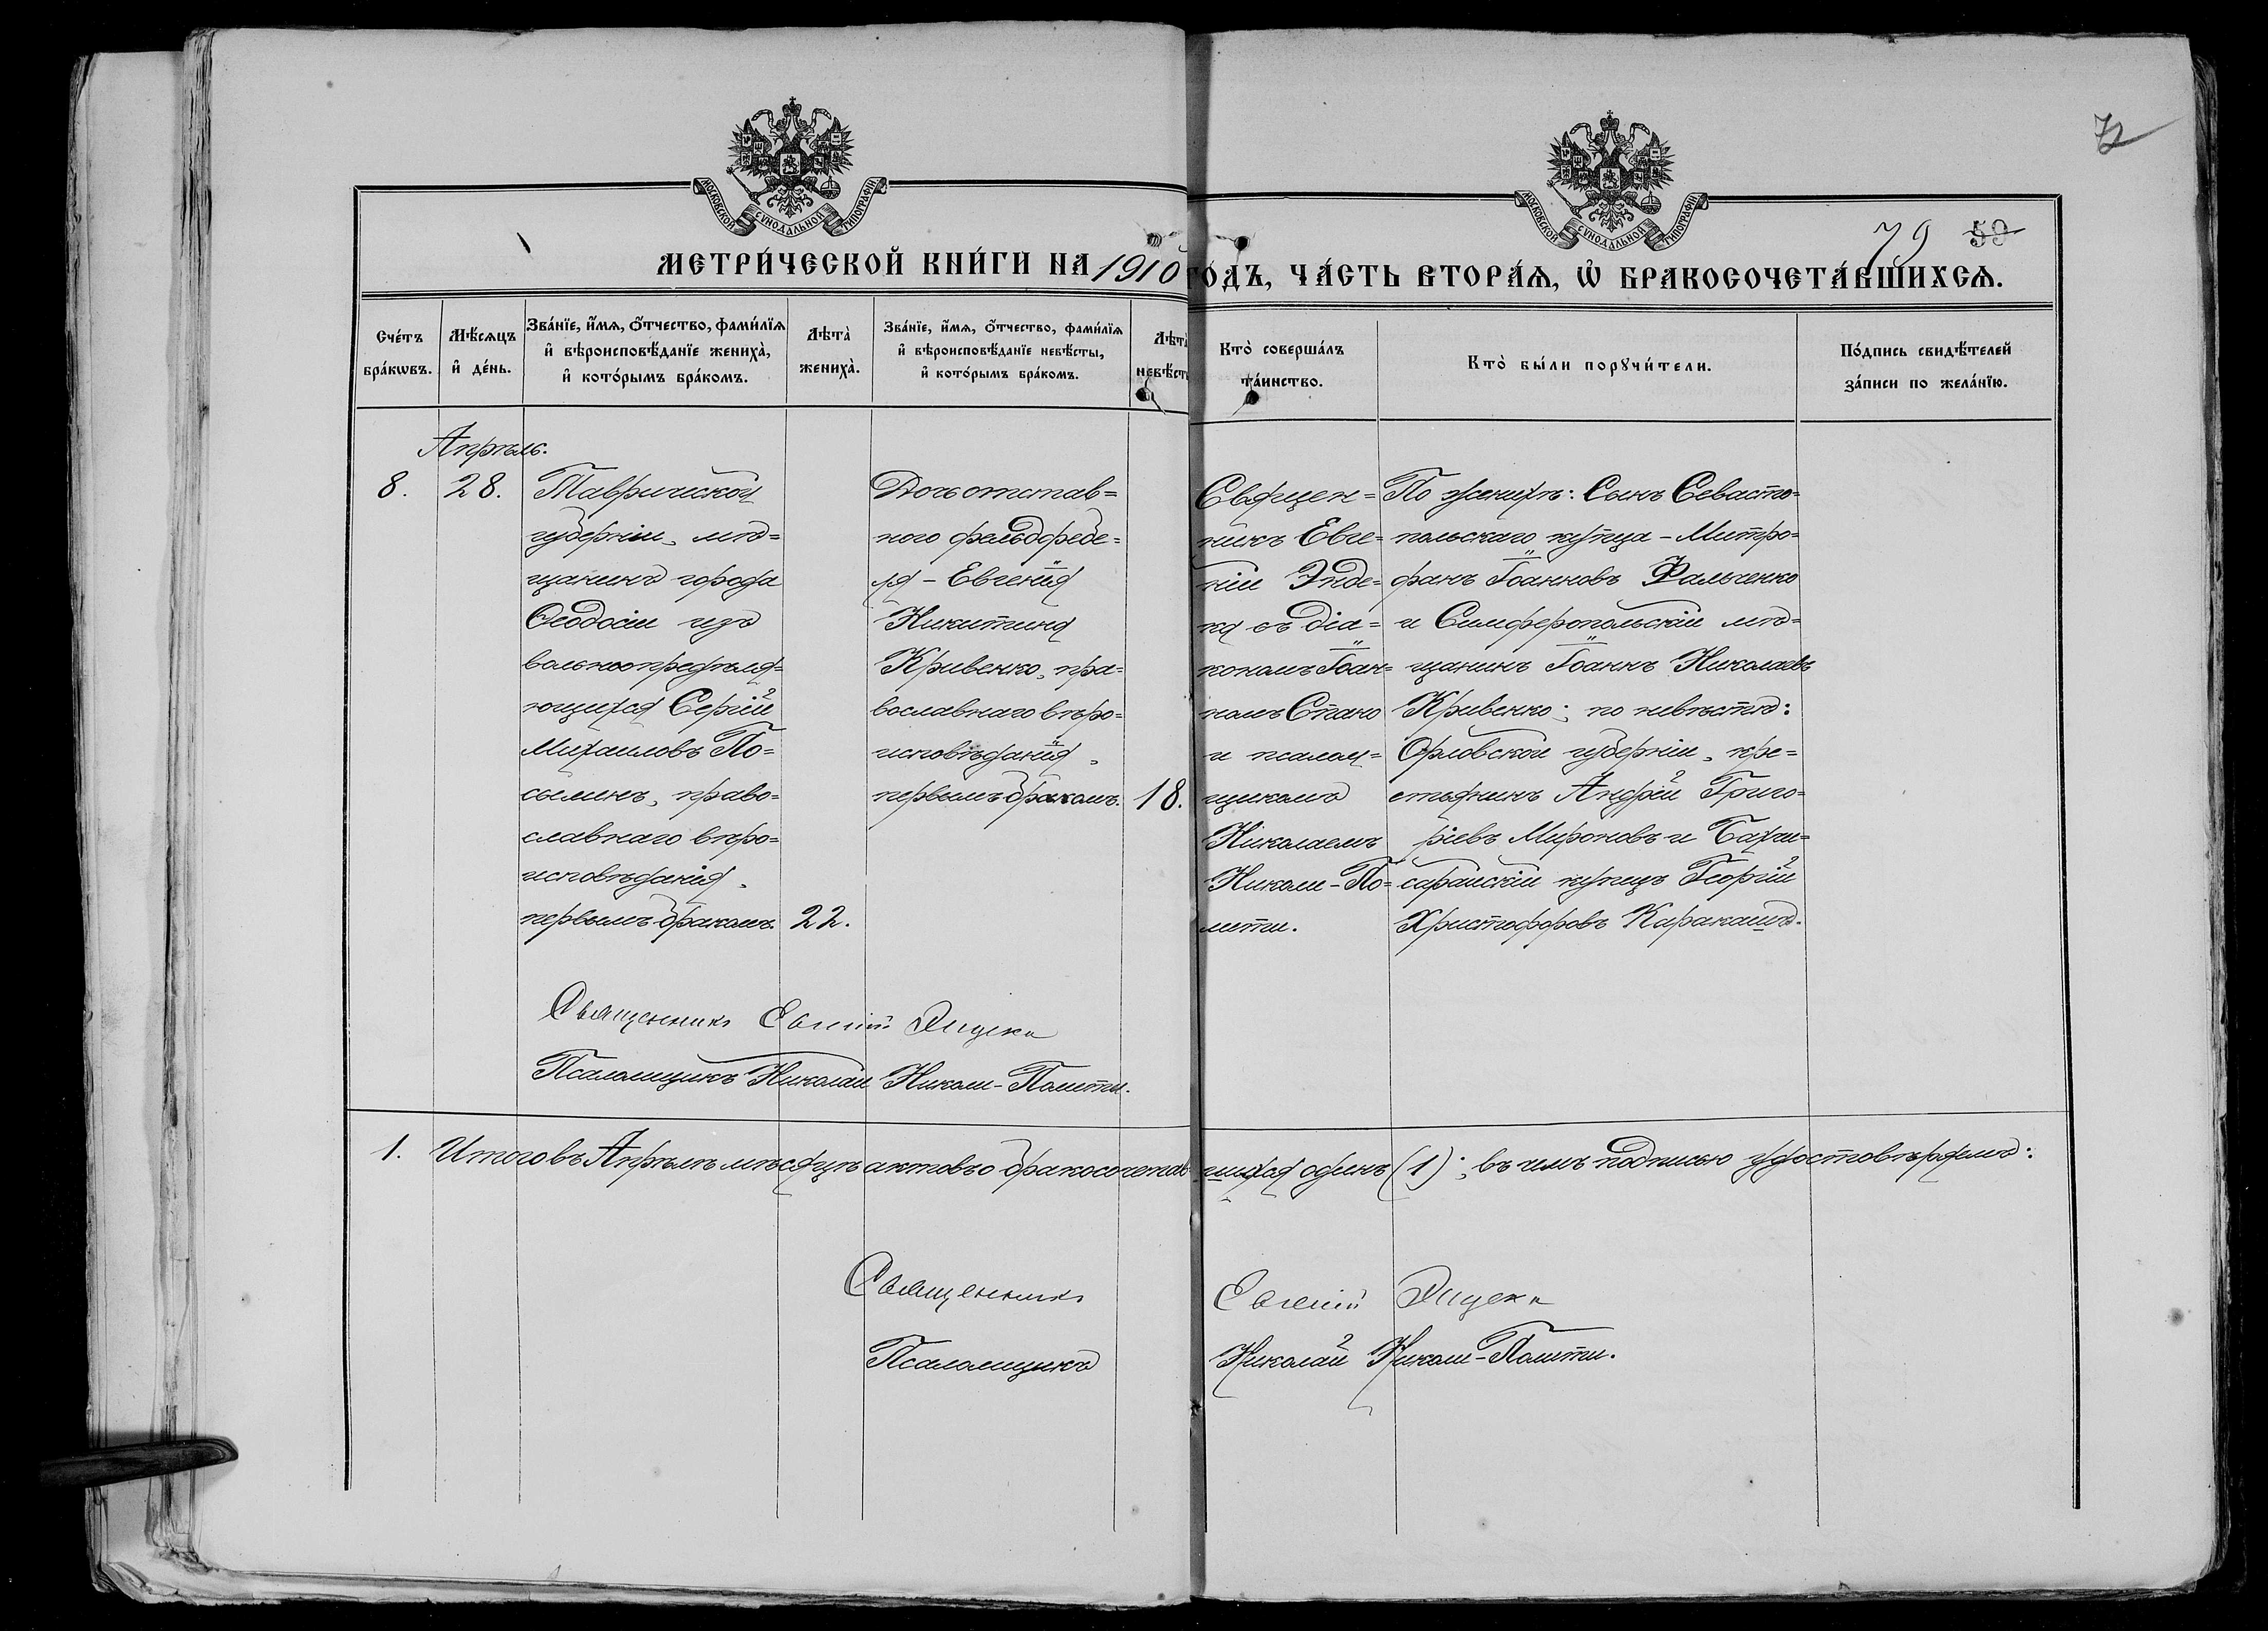 72
МОСКОВСКОЙ СѴНОДАЛЬНОЙ ТИПОГРАФІИ
МОСКОВСКОЙ СѴНОДАЛЬНОЙ ТИПОГРАФІИ
79 59
МЕТРИ́ЧЕСКОЙ КНИ́ГИ НА 1910 ГО́ДЪ, ЧА́СТЬ ВТОРА́Ѧ, Ѡ҆ БРАКОСОЧЕТА́ВШИХСѦ.
Сче́тъ
бра́кѡвъ.
Мѣ́сѧцъ
и҆ де́нь.
Зва́нїе, и҆́мѧ, ѻ҆́тчество, фами́лїѧ
и҆ вѣроисповѣ́данїе жениха̀,
и҆ кото́рымъ бра́комъ.
Лѣта̀
жениха̀.
Зва́нїе, и҆́мѧ, ѻ҆́тчество, фами́лїѧ
и҆ вѣроисповѣ́данїе невѣ́сты,
и҆ кото́рымъ бра́комъ.
Лѣта̀
невѣ́сты
Кто̀ соверша́лъ
та́инство.
Кто̀ бы́ли порꙋчи́тели.
По́дпись свидѣ́телей
за́писи по жела́нїю.
Апрѣль.
8.
28.
Таврической
губерніи, мѣ=
щанинъ города
Ѳеодосіи изъ
вольноопредѣля=
ющихся Сергій
Михаиловъ По=
сылинъ, право=
славнаго вѣро=
исповѣданія,
первымъ бракомъ.
22.
Дочь отстав=
ного фельдфебе=
ля - Евгенія
Никитина
Кривенко, пра=
вославнаго вѣро=
исповѣданія,
первымъ бракомъ.
18.
Священ=
никъ Евге=
ній Энде=
ка съ діа=
кономъ Іоан=
номъ Спано
и псалом=
щикомъ
Николаемъ
Николи-По=
лити.
По женихѣ: Сынъ Севасто=
польскаго купца - Митро=
фанъ Іоанновъ Фальченко
и Симферопольскій мѣ=
щанинъ Іоаннъ Николаевъ
Кривенко; по невѣстѣ:
Орловской губерніи, кре=
стьянинъ Андрей Григо=
ріевъ Мироновъ и Бахчи=
сарайскій купецъ Георгій
Христофоровъ Каракашъ.
Священникъ Евгеній Эндека
Псаломщикъ Николай Николи-Полити.
1. Итого въ Апрѣлѣ мѣсяцѣ актовъ о бракосочетав=шихся одинъ (1); въ чемъ подписью удостовѣряемъ:
Священникъ Евгеній Эндека
Псаломщикъ Николай Николи-Полити.